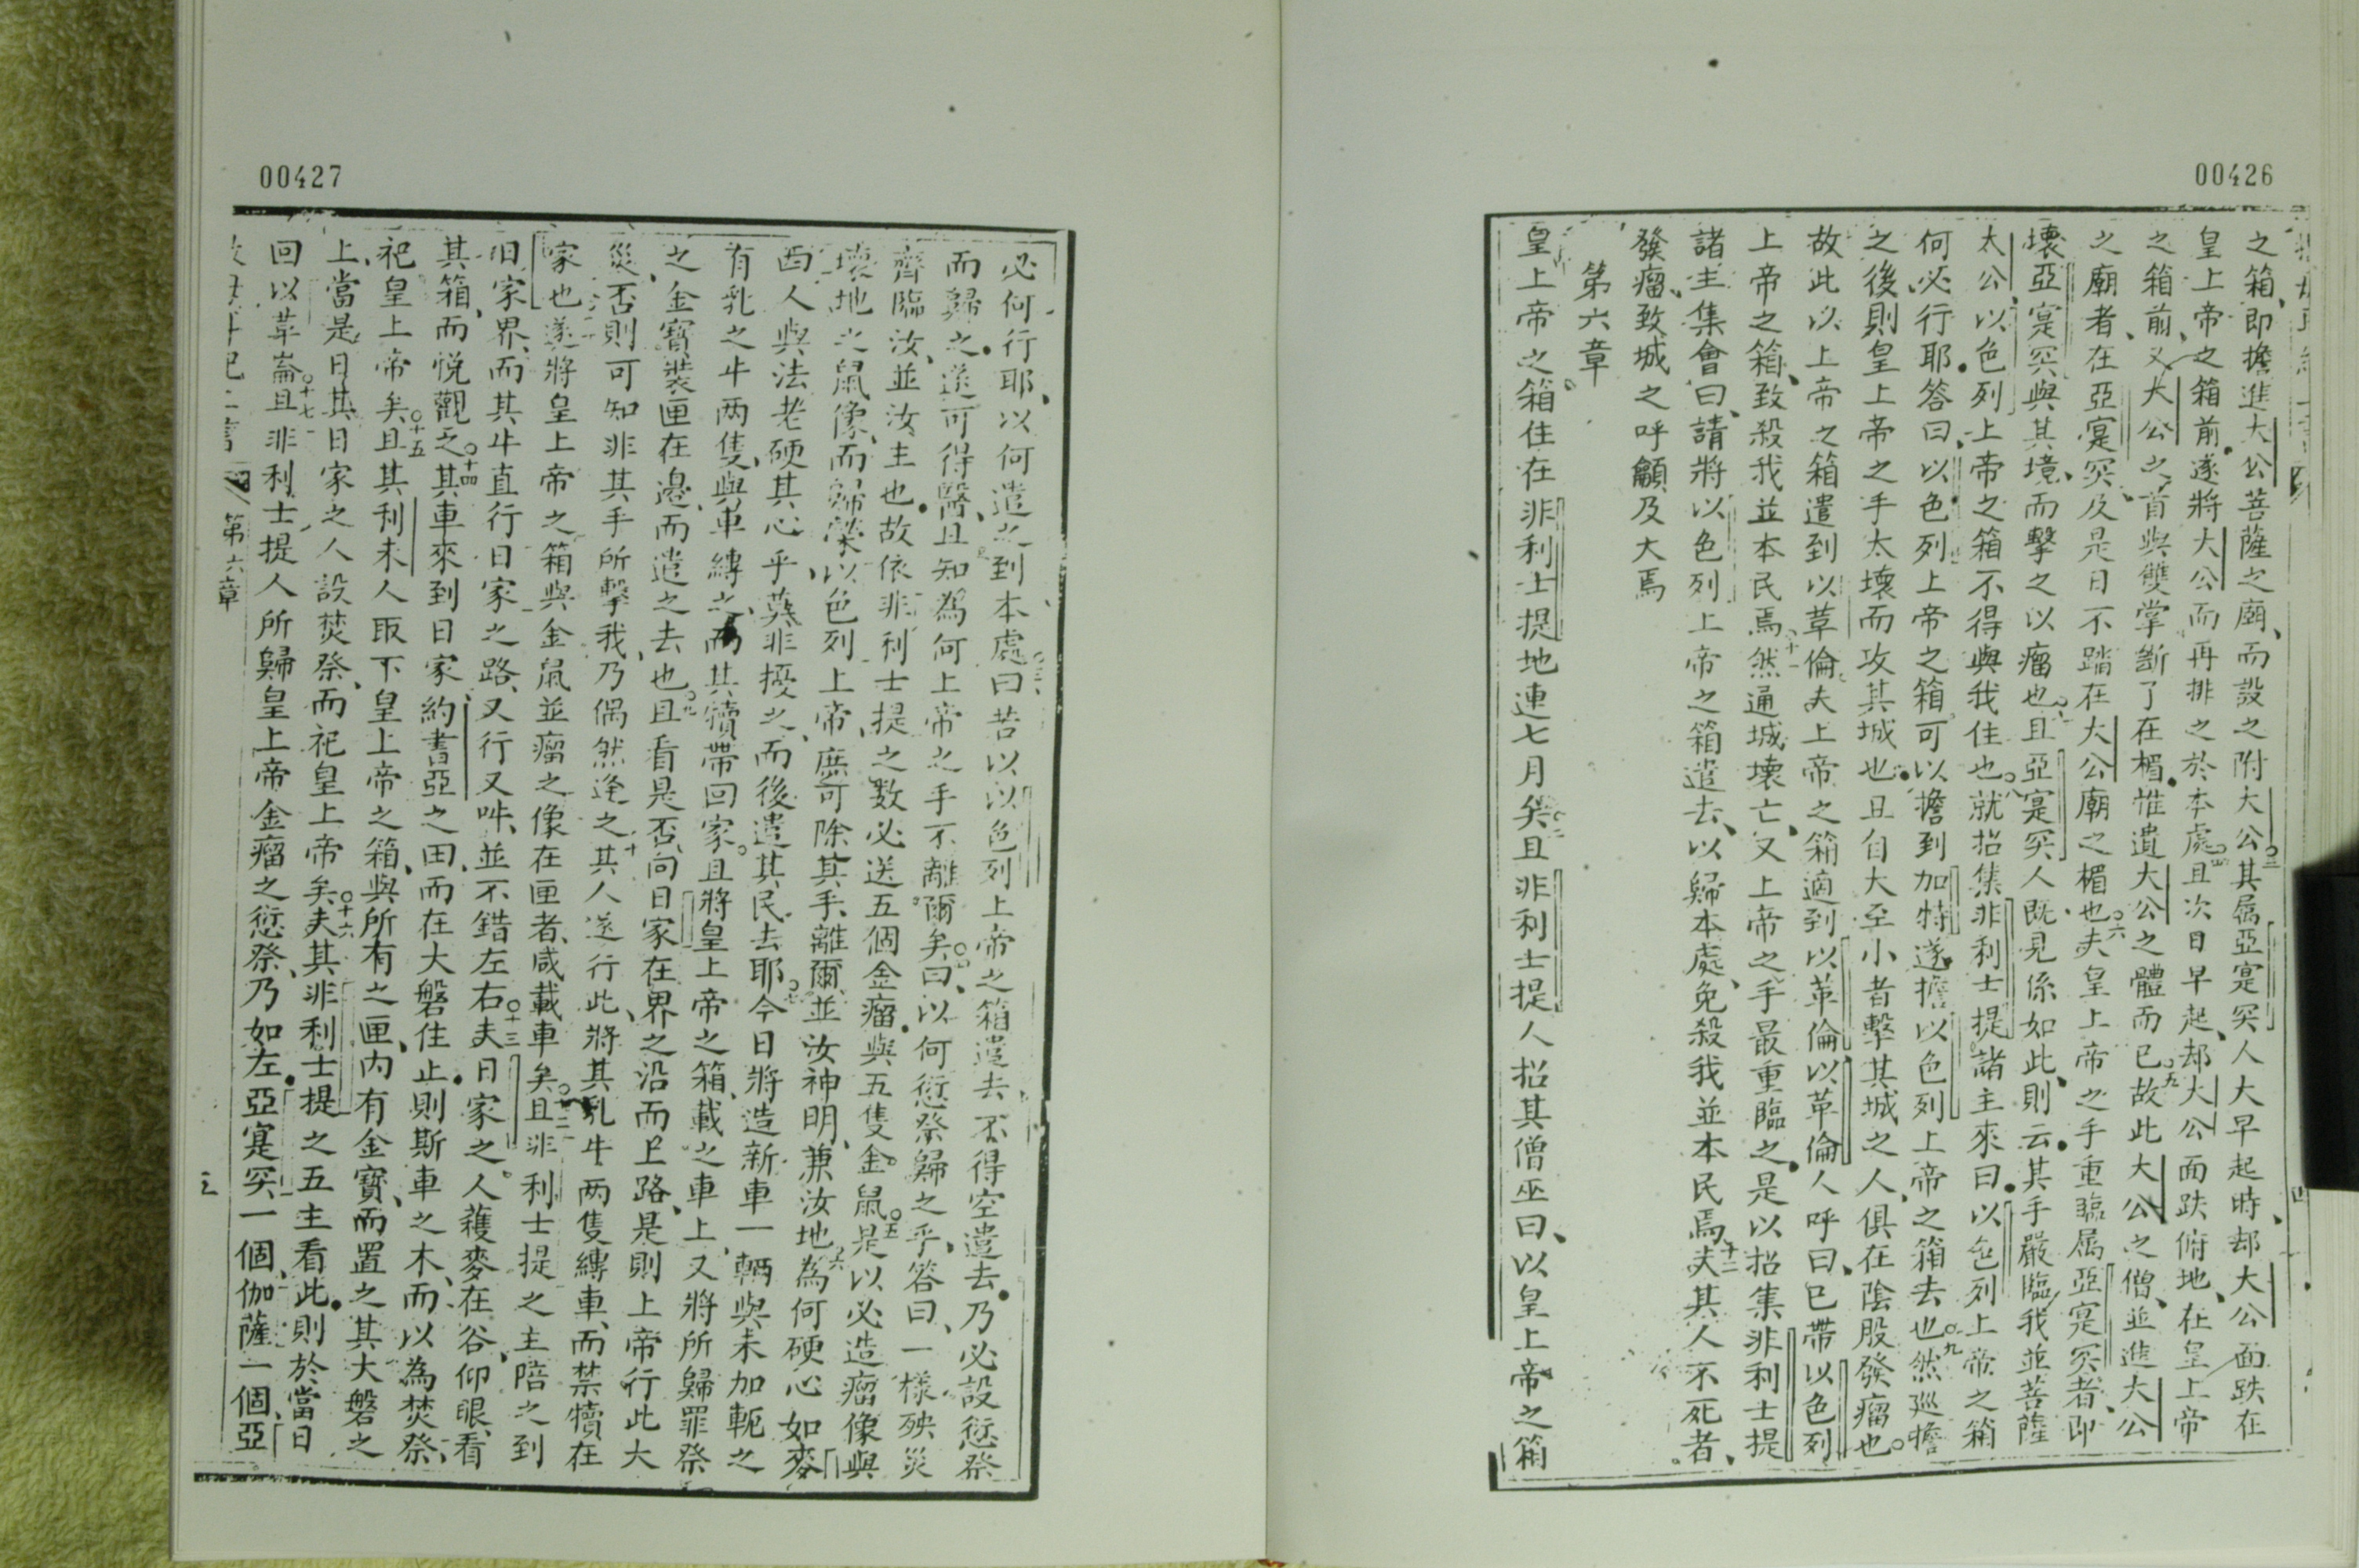 00426
之箱、即擔進大公菩薩之廟、而設之附大公○三其屬亞寔突人大早起時、却大公面跌在
皇上帝之箱前、遂將大公而再排之於本處○四且次日早起、却大公面跌俯地、在皇上帝
之箱前、又大公之首與雙掌斷了在楣、惟遺大公之體而已○五故此大公之僧、並進大公
之廟者、在亞寔突、及是日不踏在大公廟之楣也○六夫皇上帝之手重臨屬亞寔突者、即
壞亞寔突與其境、而擊之以瘤也○七且亞寔突人既見係如此、則云、其手嚴臨我並菩薩
大公、以色列上帝之箱不得與我住也○八就招集非利士提諸主來曰、以色列上帝之箱
何必行耶、答曰、以色列上帝之箱可以擔到加特、遂擔以色列上帝之箱去也○九然廵擔
之後、則皇上帝之手太壞而攻其城也、且自大至小者擊其城之人、俱在陰股發瘤也○
故此以上帝之箱遣到以革倫、夫上帝之箱適到以革倫、以革倫人呼曰、已帶以色列
上帝之箱、致殺我並本民焉○十一然通城壞亡、又上帝之手最重臨之、是以招集非利士提
諸主集會曰、請將以色列上帝之箱遣去、以歸本處、免殺我並本民焉○十二夫其人不死者、
發瘤、致城之呼籲及大焉
第六章
皇上帝之箱住在非利士提地連七月矣○二且非利士提人招其僧巫曰、以皇上帝之箱
00427
必何行耶、以何遣之到本處○三曰、若以以色列上帝之箱遣去、不得空遣去、乃必設愆祭
而歸之、遂可得醫、且知為何上帝之手不離爾矣○四曰、以何愆祭歸之乎、答曰、一樣殃災
齊臨汝、並汝主也、故依非利士提之數必送五個金瘤、與五隻金鼠○五是以必造瘤像與
壞地之鼠像、而歸榮以色列上帝、庶可除其手、離爾、並汝神明、兼汝地○六為何硬心如麥
西人與法老硬其心乎、莫非擾之、而後遣其民去耶○七今日將造新車一輛與未加軛之
有乳之牛两隻、與車縛之、而其犢帶回家○八且將皇上帝之箱、載之車上、又將所歸罪祭
之金寶、裝匣在邉、而遣之去也○九且看是否、向日家在界之沿而上路、是則上帝行此大
災、否則可知非其手所擊我、乃偶然逢之○十其人遂行此、將其乳牛两隻縛車、而禁犢在
家也○十一遂將皇上帝之箱與金鼠並瘤之像在匣者、咸載車矣○十二且非利士提之主陪之到
日家界、而其牛直行日家之路、又行又呌、並不錯左右○十三夫日家之人穫麥在谷、仰眼、看
其箱、而悅觀之○十四其車來到日家約書亞之田、而在大磐住止、則斯車之木、而以為焚祭、
祀皇上帝矣○十五且其利未人取下皇上帝之箱、與所有之匣、內有金寶、而置之其大磐之
上、當是日其日家之人設焚祭、而祀皇上帝矣○十六夫其非利士提之五主看此、則於當日
回以革崙○十七且非利士提人所歸皇上帝金瘤之愆祭、乃如左、亞寔突一個、伽薩一個、亞
第六章